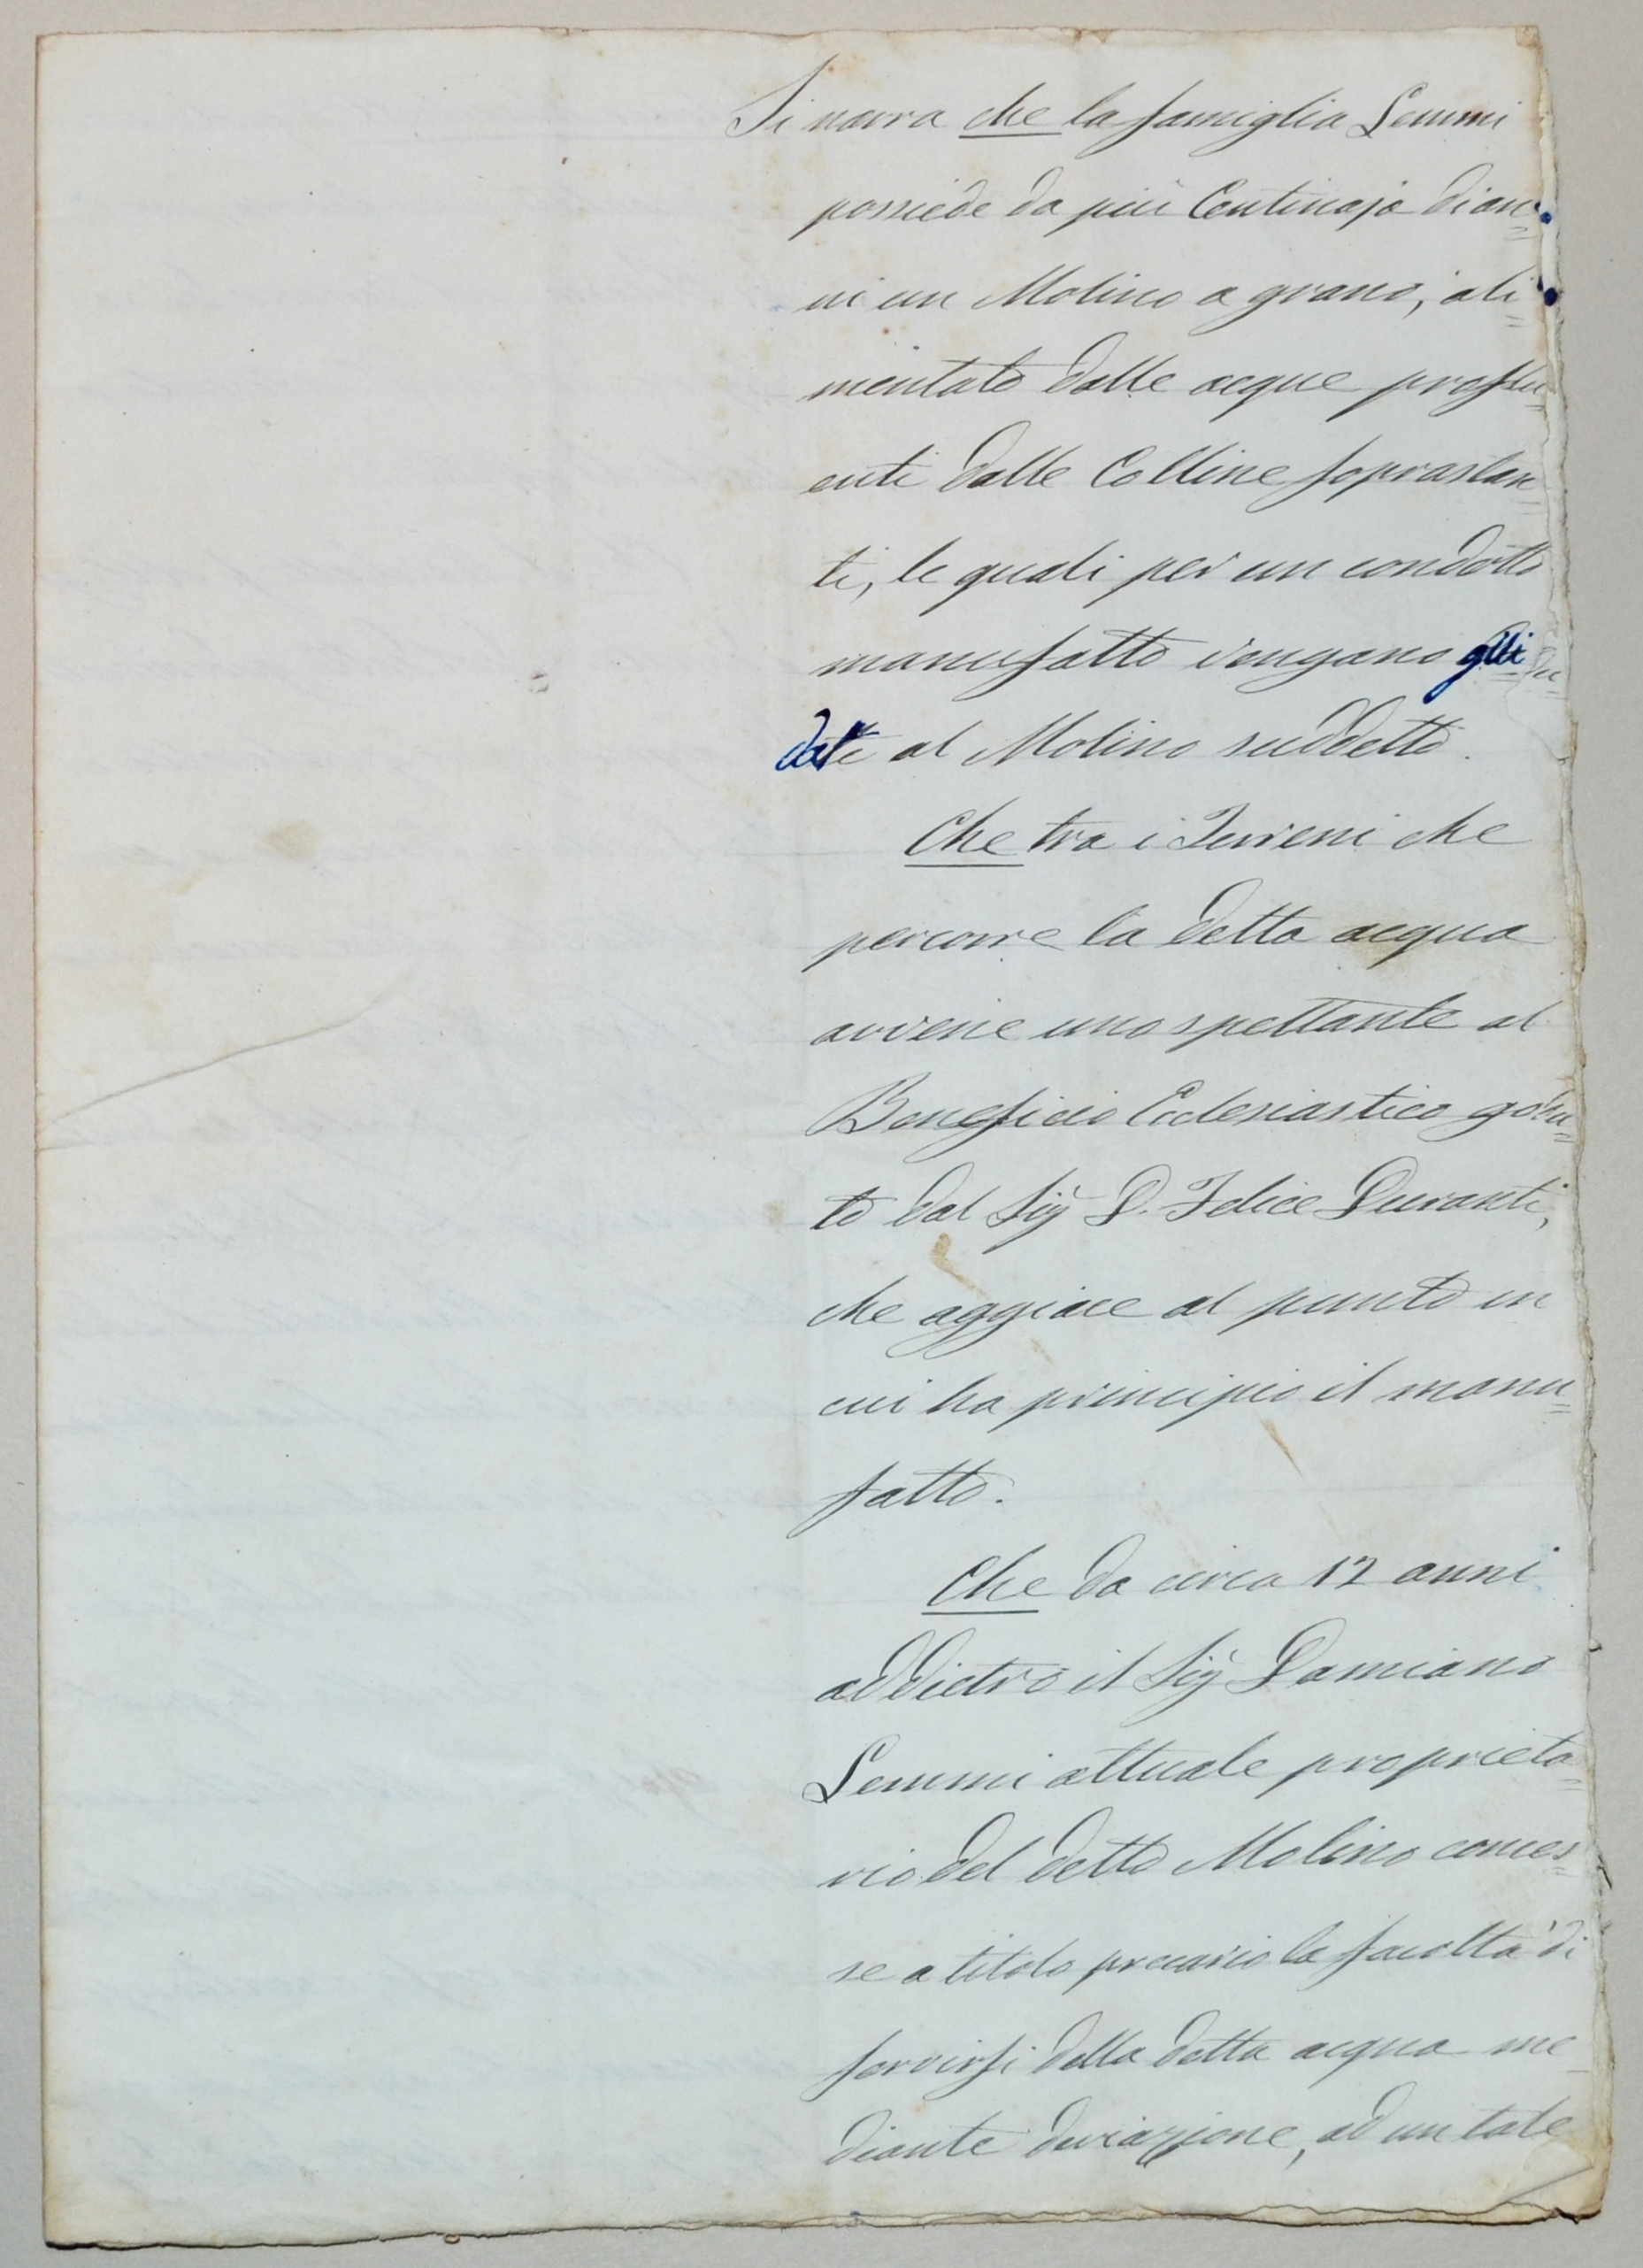 Si narra che la famiglia Lemmi
possiede da più Centinaja di an=
ni un Molino a grano, ali=
mentato dalle acque proflu=
enti dalle Colline soprastan=
ti, le quali per un condotto
manufatto vengano gui=
date al Molino suddetto.
Che tra i Terreni che
percorre la detta acqua
avvene uno spettante al
Beneficio Ecclesiastico godu=
to dal Sig. D. Felice Duranti,
che aggiace al punto in
cui ha principio il manu=
fatto.
Che da circa 12 anni
addietro il Sig. Damiano
Lemmi attuale proprieta=
rio del detto Molino conces=
se a titolo precario la facoltà di
servirsi della detta acqua me=
diante deviazione, ad un tale